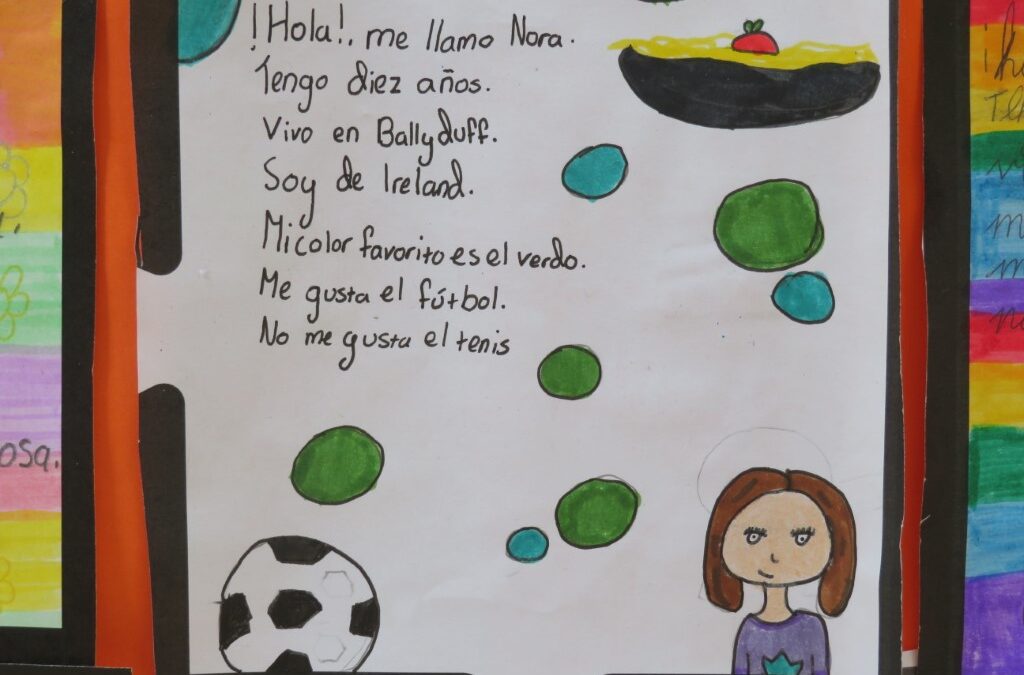 ¡Hola!, me llamo Nora.
Tengo diez años.
Vivo en Ballyduff.
Soy de Ireland.
Mi color favorito es el verdo.
Me gusta el fútbol.
No me gusta el tenis
osa.